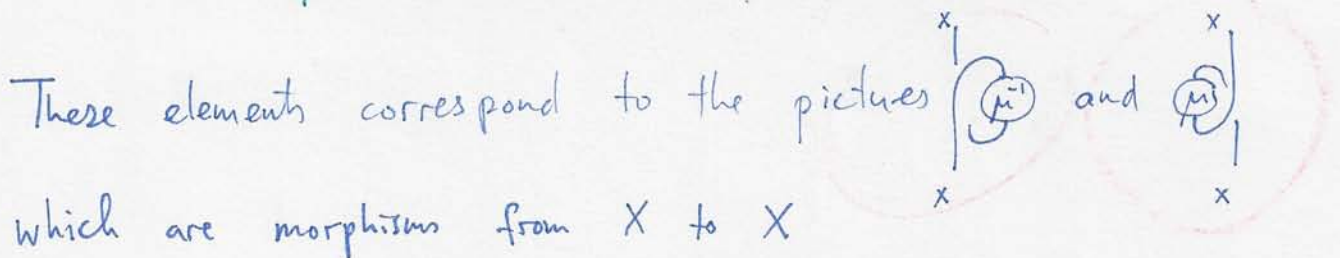 X X
These elements correspond to the pictures μ⁻¹ and μ
X X
which are morphisms from X to X